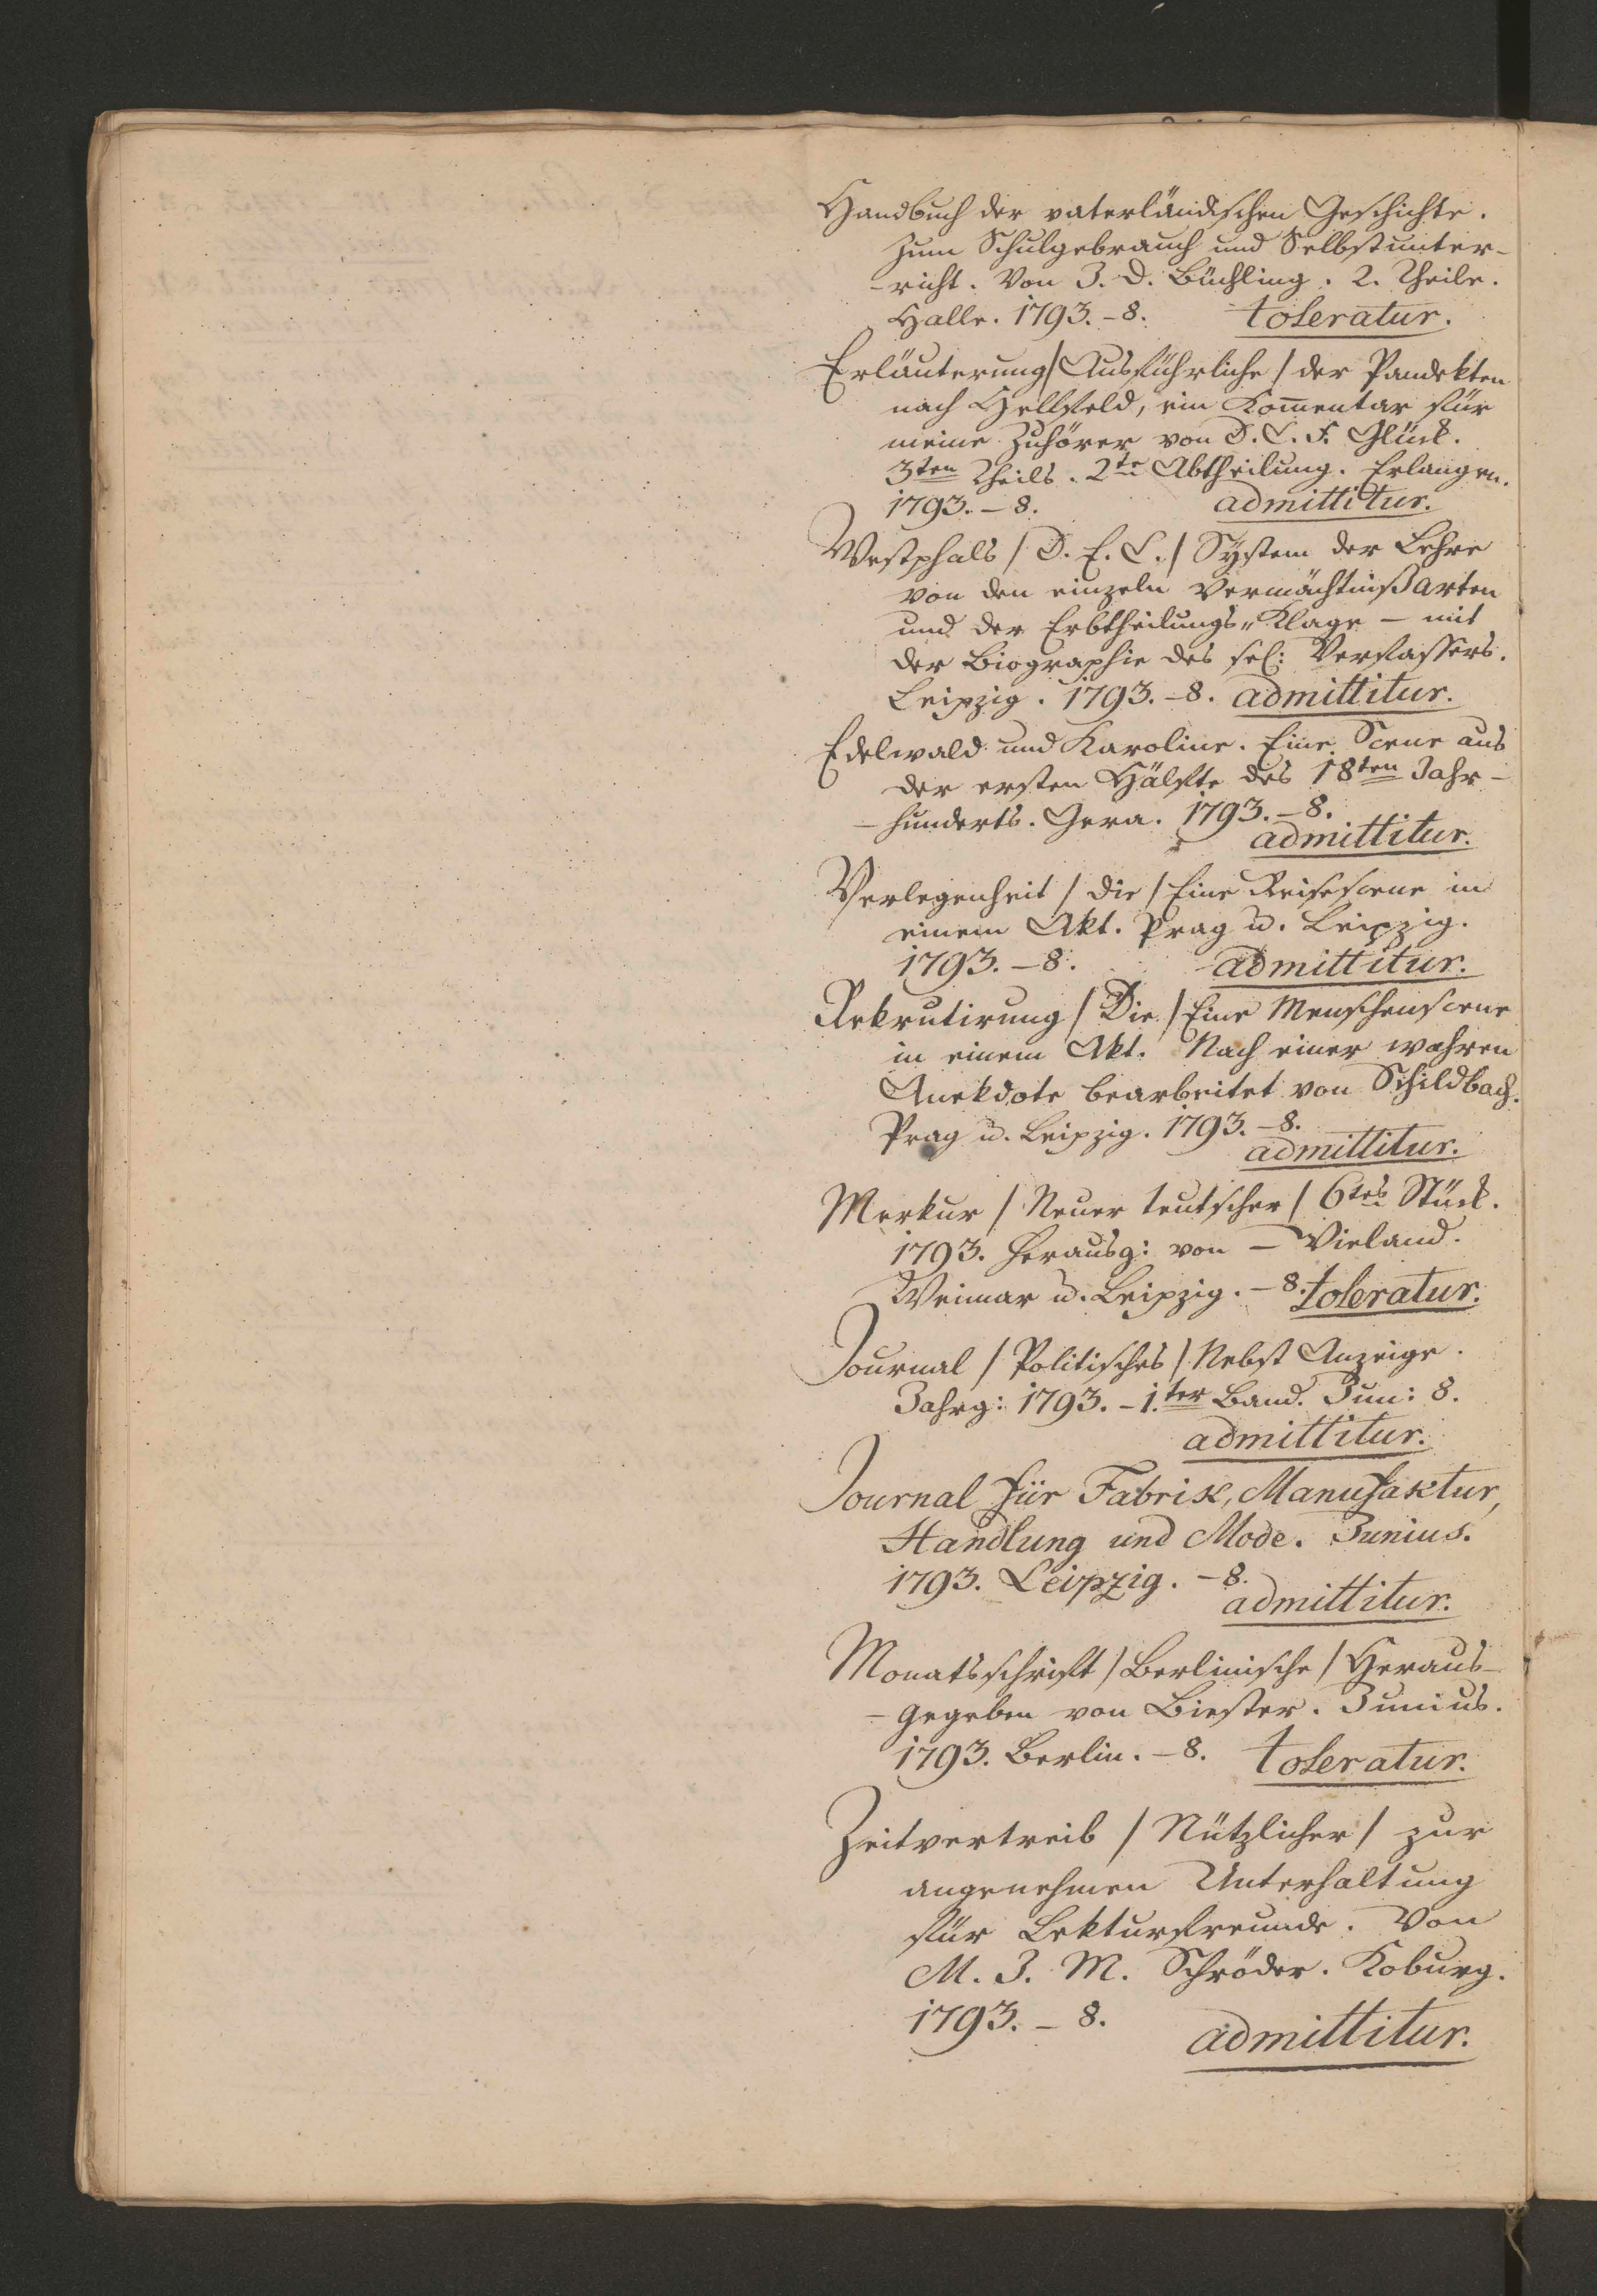 Handbuch der vaterländischen Geschichte.
Zum Schulgebrauch und Selbstunter-
-richt. Von J. D. Büchling. 2. Theile.
Halle. 1793. - 8. toleratur.
Erläuterung / Ausführliche / der Pandekten
nach Hellfeld, ein Kom̅entar für
meine Zuhörer von D. C. F. Glück.
3ten Theils. 2te Abtheilung. Erlangen.
1793. - 8. admittitur.
Westphals / D. E. C. / System der Lehre
von den einzeln Vermächtnißarten
und der Erbtheilungs„Klage - mit
der Biographie des sel: Verfassers.
Leipzig. 1793. - 8. admittitur.
Edelwald und Karoline. Eine Scene aus
der ersten Hälfte des 18ten Jahr-
-hunderts. Gera. 1793. - 8.
admittitur.
Verlegenheit / die / Eine Reisescene in
einem Akt. Prag u. Leipzig.
1793. - 8. admittitur.
Rekrutirung / Die / Eine Menschenscene
in einem Akt. Nach einer wahren
Anekdote bearbeitet von Schildbach.
Prag u. Leipzig. 1793. - 8.
admittitur.
Merkur / Neuer teutscher / 6tes Stück.
1793. Herausg: von - Wieland.
Weimar u. Leipzig. - 8. toleratur.
Journal / Politisches / Nebst Anzeige.
Jahrg: 1793. - 1.ter Band. Jun: 8.
admittitur.
Journal für Fabrik, Manufaktur,
Handlung und Mode. Junius.
1793. Leipzig. - 8.
admittitur.
Monatsschrift / Berlinische / Heraus-
-gegeben von Biester. Junius.
1793. Berlin. - 8. toleratur.
Zeitvertreib / Nützlicher / zur
angenehmen Unterhaltung
für Lekturfreunde. Von
M. J. M. Schröder. Koburg.
1793. - 8. admittitur.